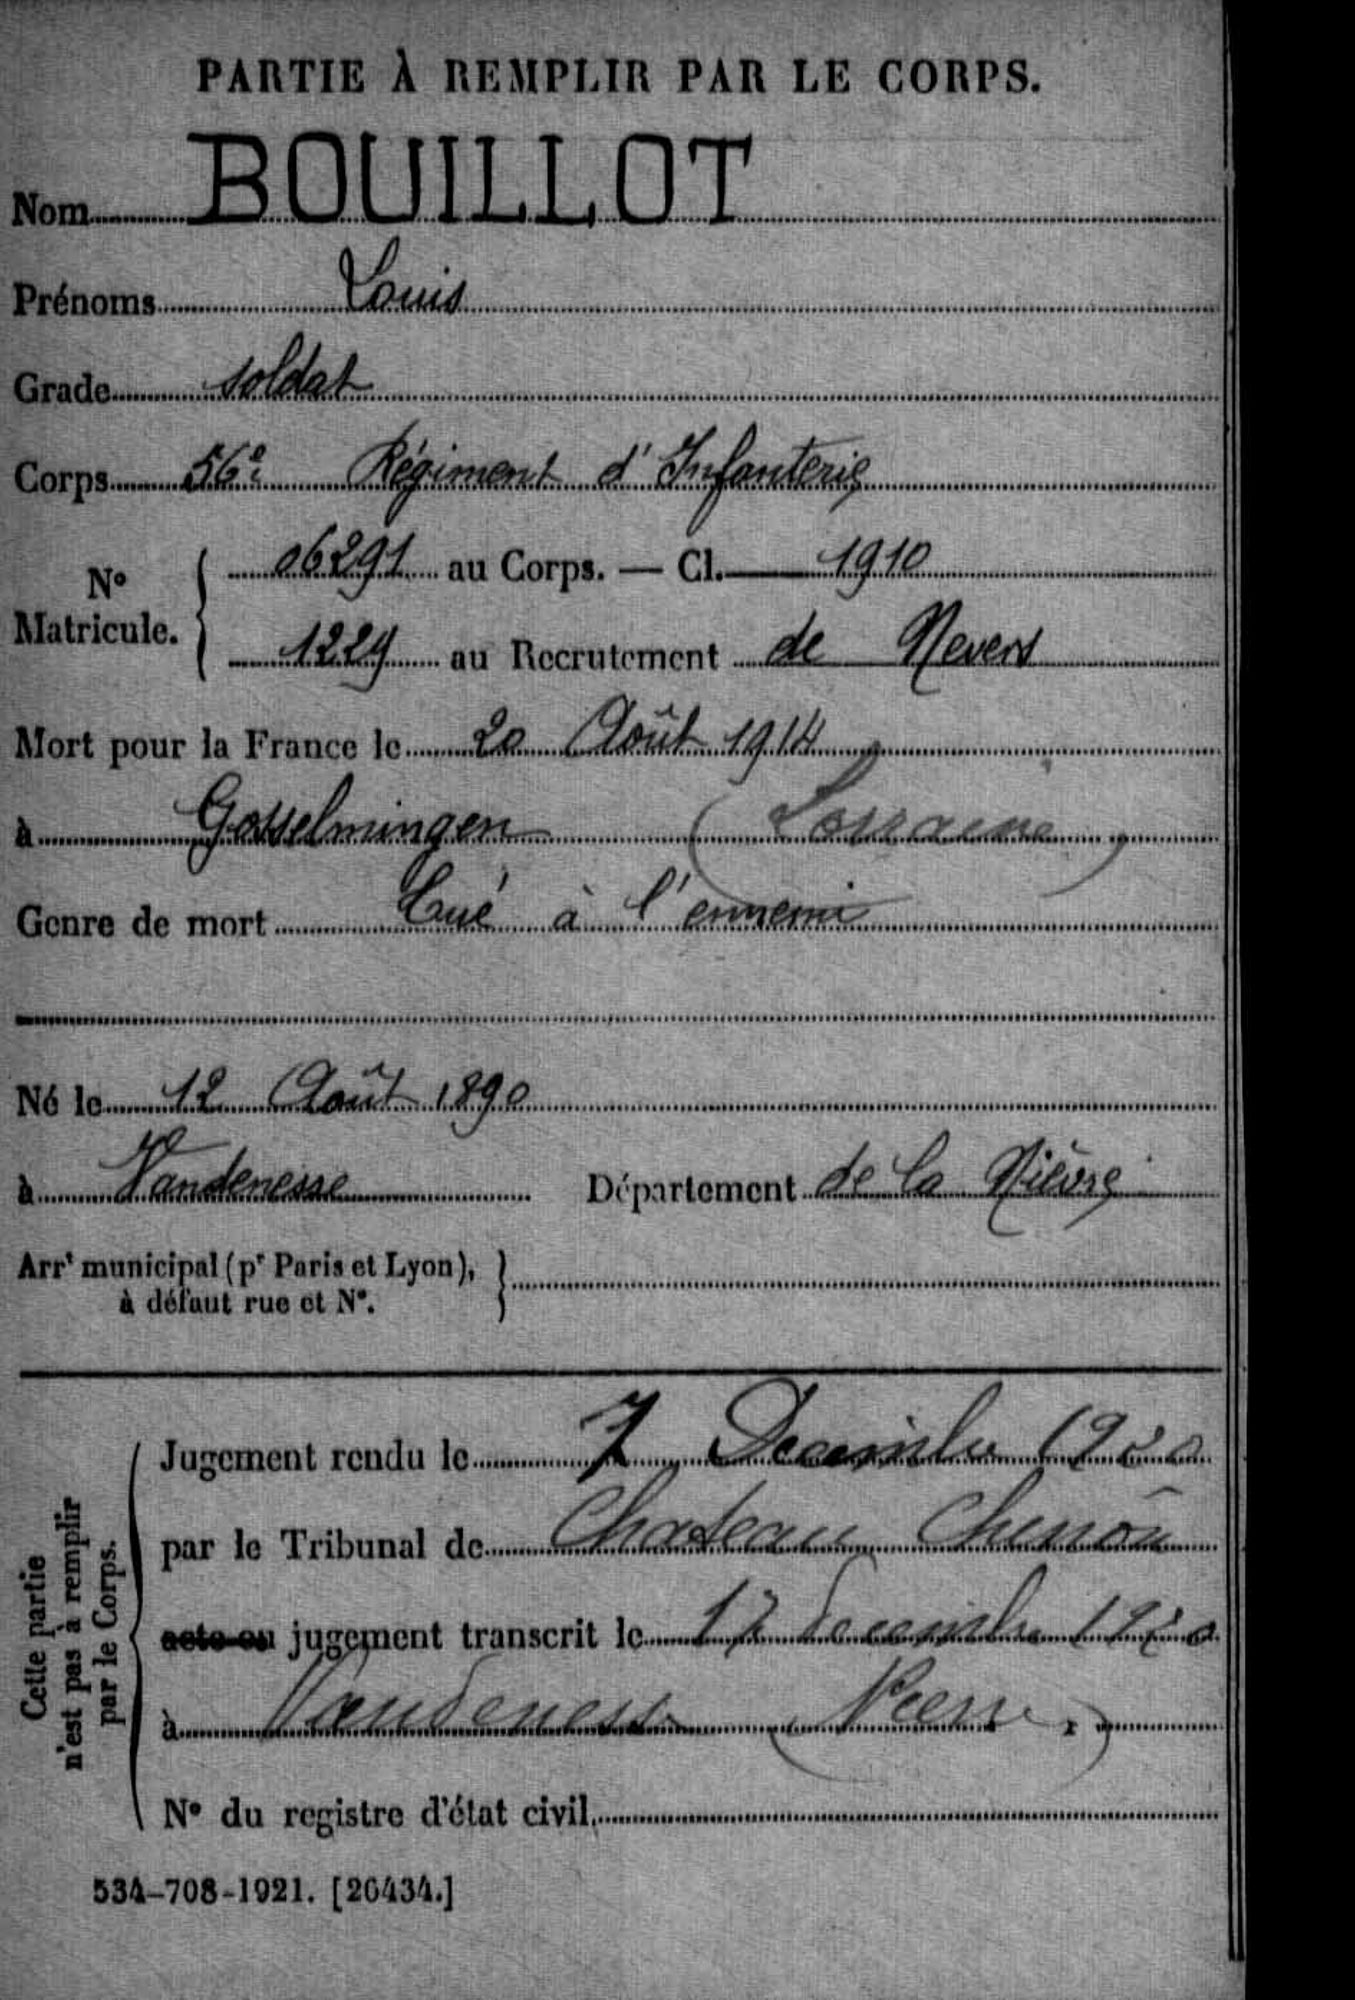 PARTIE À REMPLIR PAR LE CORPS.
Nom BOUILLOT
Prénoms Louis
Grade soldat
Corps 56e Régiment d'Infanterie
N° Matricule. { 06291 au Corps. — Cl. 1910
1229 au Recrutement de Nevers
Mort pour la France le 20 Août 1914
à Gosselmingen (Lorraine)
Genre de mort Tué à l'ennemi
Né le 12 Août 1890
à Vandenesse Département de la Nièvre
Arrt municipal (pr Paris et Lyon), }
à défaut rue et N°.
Cette partie
n'est pas à remplir
par le Corps.
Jugement rendu le 7 Decembre 1920
par le Tribunal de Chateau Chinon
acte ou jugement transcrit le 17 decembre 1920
à Vandenesse (Nievre.)
N° du registre d'état civil
534-708-1921. [26434.]